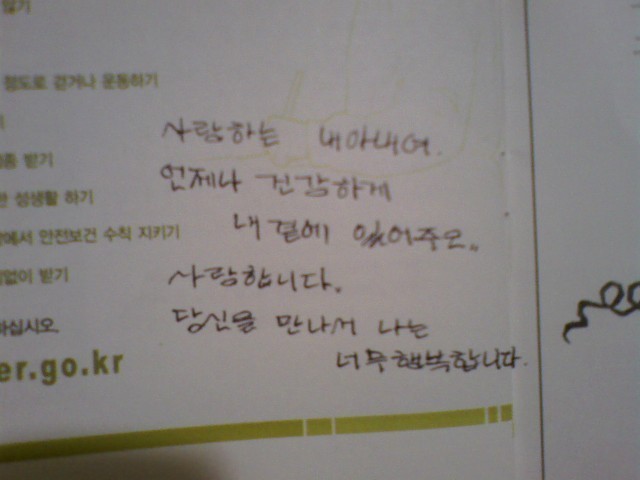 않기
정도로 걷거나 운동하기
기
종 받기
한 성생활 하기
에서 안전보건 수칙 지키기
없이 받기
하십시오.
er.go.kr
사랑하는 내아내여.
언제나 건강하게
내 곁에 있어주오..
사랑합니다.
당신을 만나서 나는
너무행복합니다.